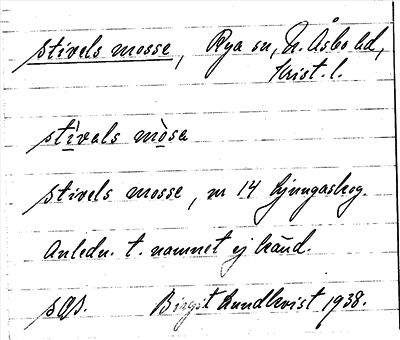 stivels mosse, Rya sn, N. Åsbo hd,
Krist. l.
stivals mosa
stivels mosse, nr 14 Ljungaskog.
Anledn. t. namnet ej känd.
Birgit Lundkvist 1938.